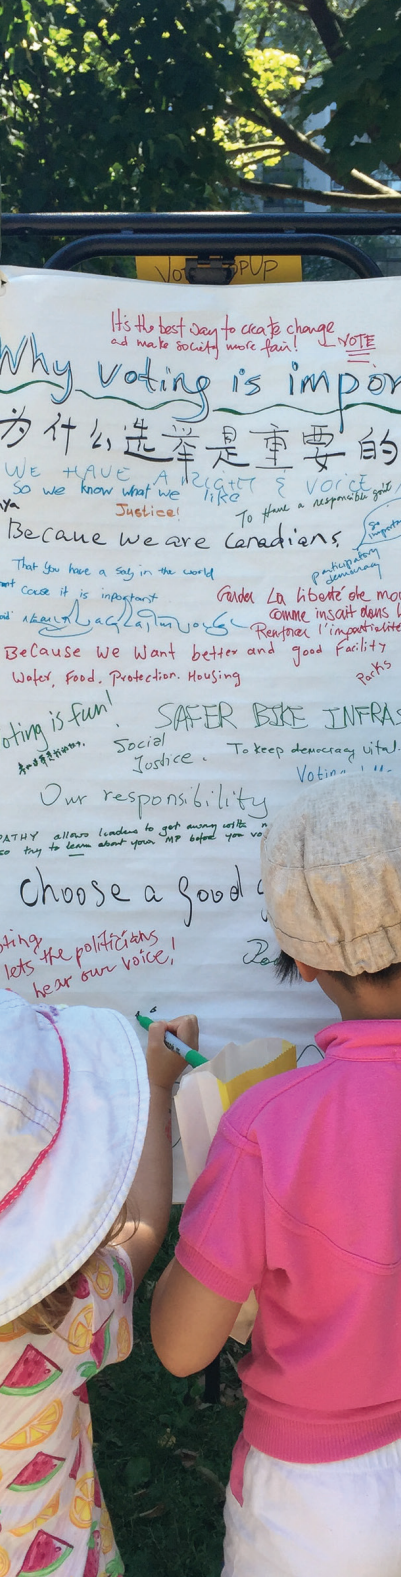 It's the best way to create change
and make society more fair! VOTE
Why voting is impor
为什么选举是重要的
WE HAVE A RIGHT & VOICE
So we know what we like
Justice!
To Have a responsible gov't
Because we are Canadians
participatory
democracy
That you have a say in the world
Cause it is inportant
Garder La liberté de mo
comme inscrit dans l
Renforcer l'impartialité
Because We Want better and good Facility
Water, Food, Protection, Housing
Parks
oting is fun!
SAFER BIKE INFRAS
Social
Justice.
To keep democracy vital.
Voting
Our responsibility
PATHY allows leaders to get away with
so try to learn about your MP before you vo
Choose a good
oting
lets the politicians
hear our voice!